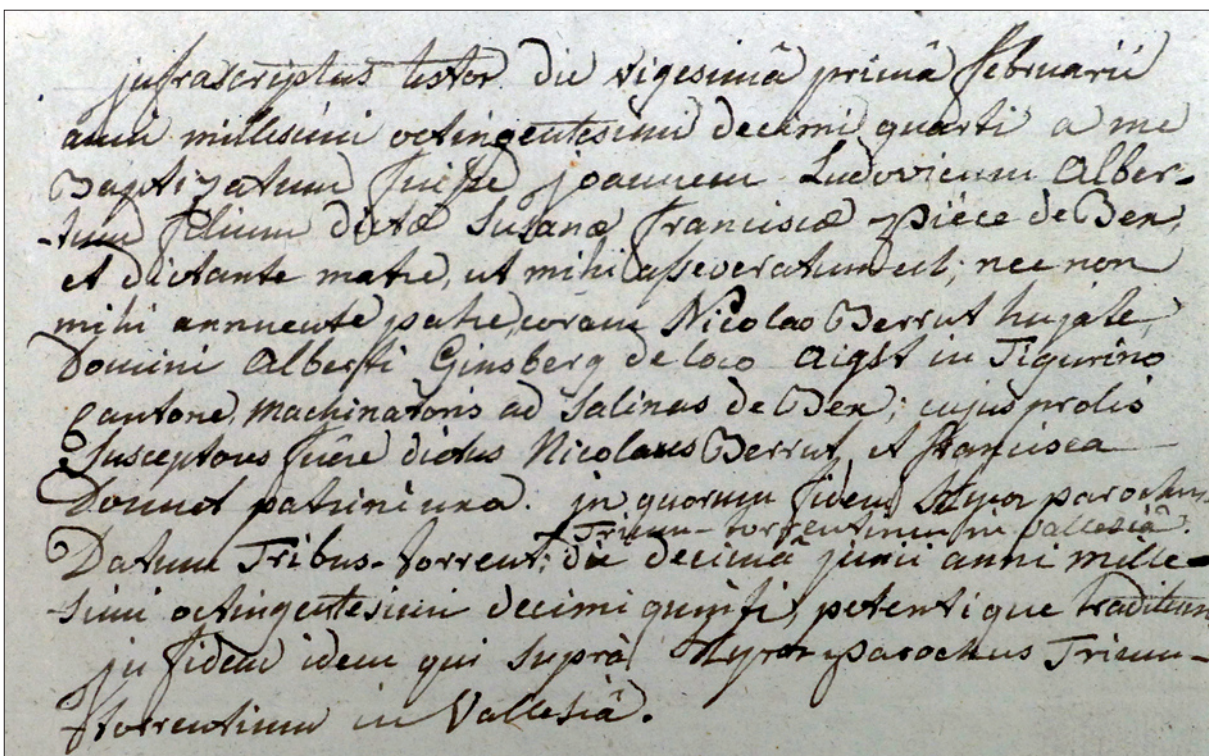 jnfrascriptus testor die vigesimâ primâ februarii
anni millesimi octingentesimi decimi quarti a me
Baptizatum fuisse joannem Ludovicum Alber-
-tum filium dictæ Susanæ Franciscæ Piéce de Bex,
et dictante matre, ut mihi asseveratum est; nec non
mihi annuente patre, coram Nicolao Berrut hujate,
Domini Alberti Ginsberg de loco Aigst in Tigurino
cantone, Machinatoris ad Salinas de Bex; cujus prolis
Susceptores fuêre dictus Nicolaus Berrut, et francisca
Donnet patrini una. jn quorum fidem parochus
Trium-torrentinum in Vallesiâ.
Datum Tribus-torrent; die decimâ junii anni mille-
-simi octingentesimi decimi quinti, petentique traditum
jn fidem idem qui suprà parochus Trium-
-torrentinum in Vallesiâ.